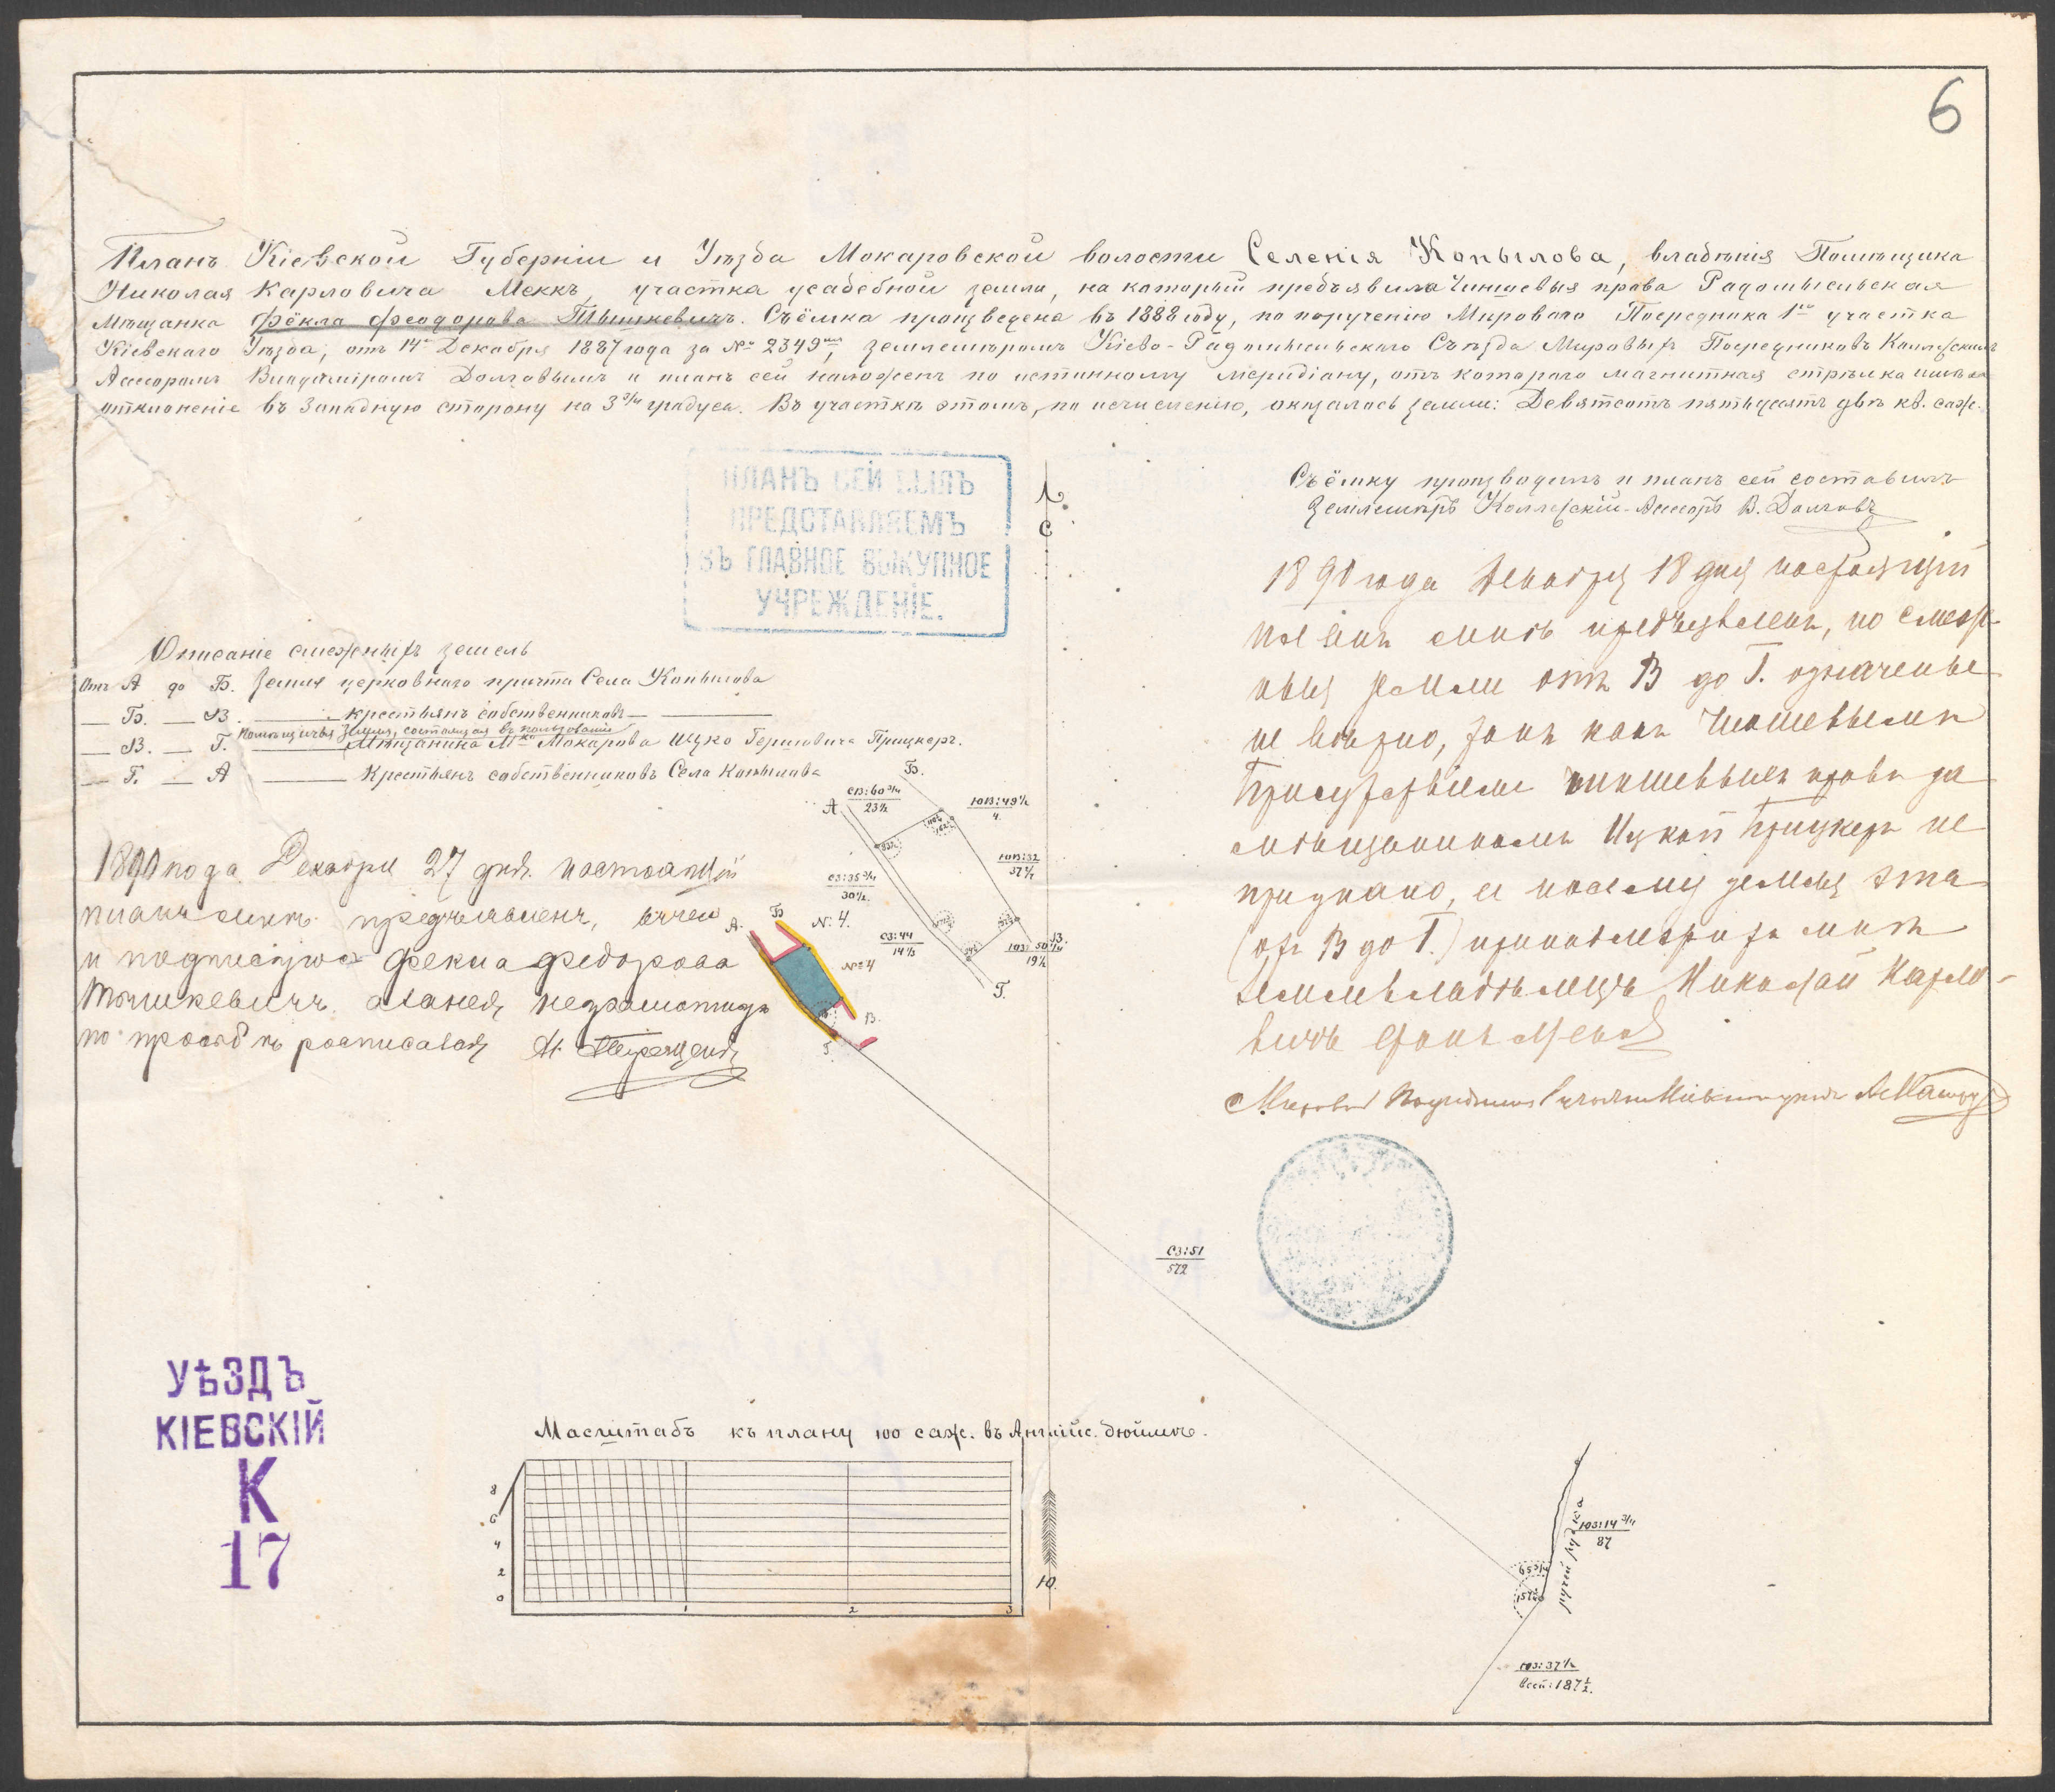 6
Планъ Кіевской Губерніи и Уѣзда Мокаровской волости Селенія Копылова, владѣнія Помѣщика
Николая Карловича Меккъ, участка усадебной земли, на который предъявила Чиншевыя права Радомысльская
Мѣщанка Фёкла Феодорова Тышкевичъ. Съёмка произведена въ 1888 году, по порученію Мироваго Посредника 1го участка
Кіевскаго Уѣзда, отъ 14го Декабря 1887 года за № 2349мъ, землемѣромъ Кіево-Радомысльскаго Съѣзда Мировыхъ Посредниковъ Коллежскимъ
Асессоромъ Владиміромъ Долговымъ и планъ сей наложенъ по истинному Меридіану, отъ котораго магнитная стрѣлка имѣла
отклоненіе въ Западную сторону на 3 3/4 градуса. Въ участкѣ этомъ, по исчисленію, оказалось земли: Девятсотъ пятьдесятъ двѣ кв. саж.
ПЛАНЪ СЕЙ БЫЛЪ
ПРЕДСТАВЛЯЕМЪ
ВЪ ГЛАВНОЕ ВЫКУПНОЕ
УЧРЕЖДЕНІЕ.
С
Съёмку производилъ и планъ сей составилъ
Землемѣръ Коллежскій-Асессоръ В. Долговъ
1890 года Декабря 18 дня настоящій
планъ мнѣ предъявленъ, но смеж-
ныя земли отъ В до Г. означены
не вѣрно, такъ какъ Чиншевымъ
Присутствіемъ чиншевыхъ правъ за
мѣщаниномъ Ицкой Прицкеръ не
признано, и посему земля эта
(отъ В до Г.) принадлежитъ мнѣ
землевладѣлецъ Николай Карло-
вичъ фонъ Меккъ
Описаніе смежныхъ земель
Отъ А до Б. Земля церковнаго причта Села Копылова
— Б. — В. — крестьянъ собственниковъ —
Помѣщичья Земля, состоящая въ пользованіи
— В. — Г. — Мѣщанина Мка Мокарова Ицко Гершовича Прицкеръ.
— Г. — А — Крестьянъ собственниковъ Села Копылова
1890 года Декабря 27 дня настоящій
планъ мнѣ предъявленъ, въ чем
и подписуюсь Фекла Федорова
Тышкевичъ а за нея неграмотную
по просьбѣ росписался
Б.
А
СВ:60 3/4
23 1/2
ЮВ:49 1/2
4.
ЮВ:32
37 1/2
СЗ:35 3/4
30 1/2.
СЗ:44
14 1/2
ЮЗ:50 1/4
19 1/2
В.
Г.
А.
Б
№ 4.
№ 4
В.
Г.
СЗ:51
572
УѢЗДЪ
КІЕВСКІЙ
К
17
Масштабъ къ плану 100 саж. въ Англійс. дюймѣ.
8
6
4
2
0
1
2
3
Ю.
ручей рудка
ЮЗ:14 3/4
87
65 3/4
ЮЗ:37 1/2
всей:187 1/2.